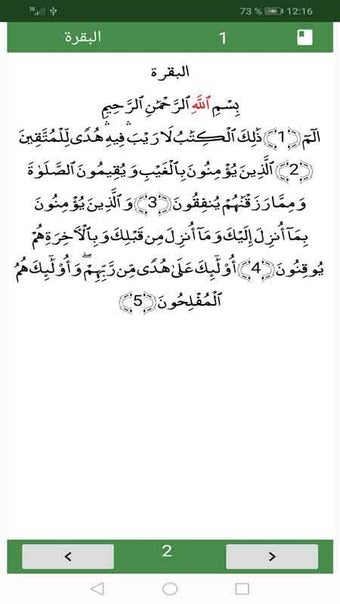 73 % 12:16
البقرة 1
البقرة
بِسْمِ اللَّهِ الرَّحْمَٰنِ الرَّحِيمِ
الٓمٓ ﴿1﴾ ذَٰلِكَ الْكِتَٰبُ لَا رَيْبَ ۛ فِيهِ ۛ هُدًى لِّلْمُتَّقِينَ
﴿2﴾ الَّذِينَ يُؤْمِنُونَ بِالْغَيْبِ وَيُقِيمُونَ الصَّلَوٰةَ
وَمِمَّا رَزَقْنَٰهُمْ يُنفِقُونَ ﴿3﴾ وَالَّذِينَ يُؤْمِنُونَ
بِمَآ أُنزِلَ إِلَيْكَ وَمَآ أُنزِلَ مِن قَبْلِكَ وَبِالْـَٔاخِرَةِ هُمْ
يُوقِنُونَ ﴿4﴾ أُو۟لَٰٓئِكَ عَلَىٰ هُدًى مِّن رَّبِّهِمْ ۖ وَأُو۟لَٰٓئِكَ هُمُ
الْمُفْلِحُونَ ﴿5﴾
< 2 >